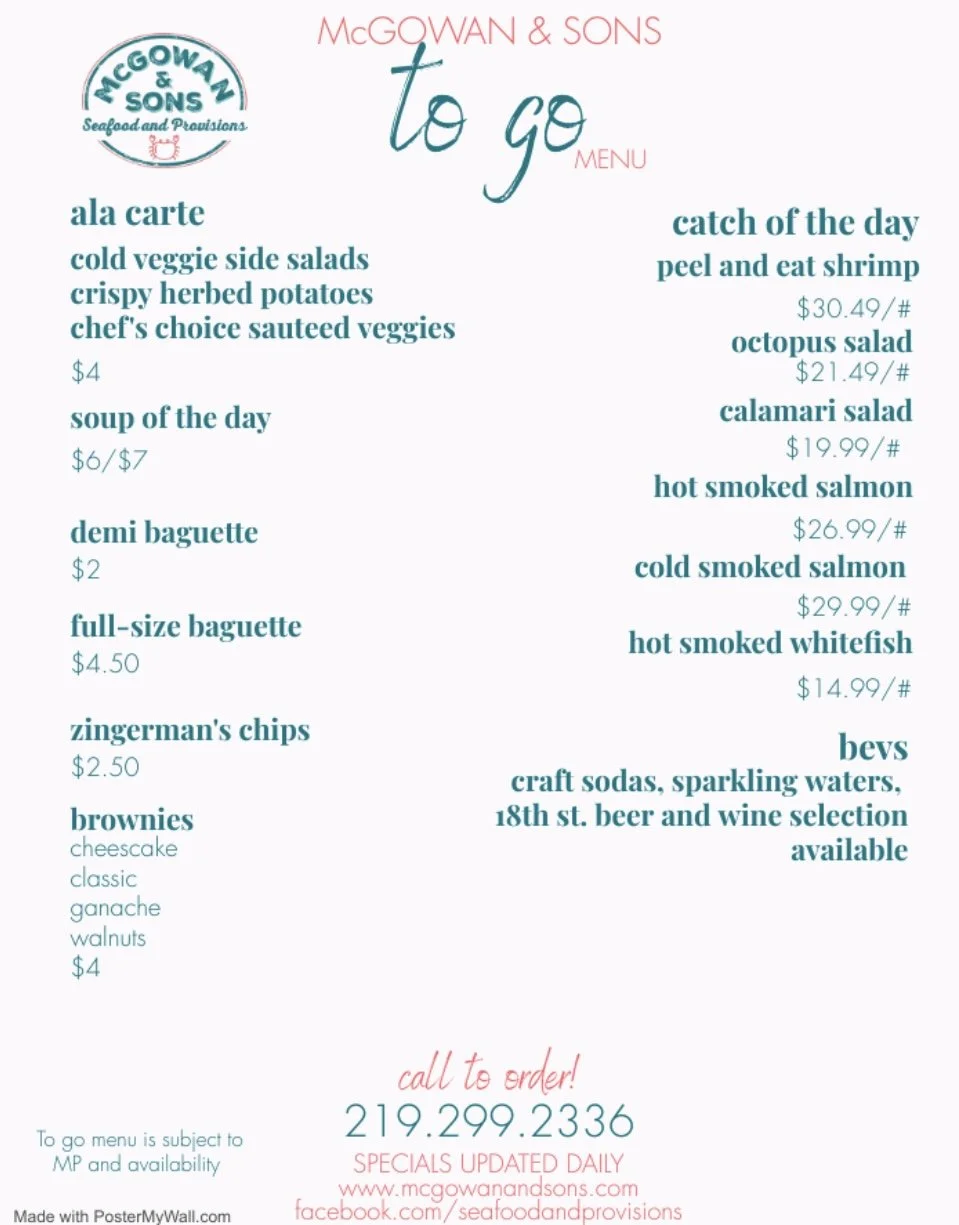 McGOWAN & SONS
to go
MENU
McGOWAN
&
SONS
Seafood and Provisions
ala carte
cold veggie side salads
crispy herbed potatoes
chef's choice sauteed veggies
$4
soup of the day
$6/$7
demi baguette
$2
full-size baguette
$4.50
zingerman's chips
$2.50
brownies
cheescake
classic
ganache
walnuts
$4
catch of the day
peel and eat shrimp
$30.49/#
octopus salad
$21.49/#
calamari salad
$19.99/#
hot smoked salmon
$26.99/#
cold smoked salmon
$29.99/#
hot smoked whitefish
$14.99/#
bevs
craft sodas, sparkling waters,
18th st. beer and wine selection
available
call to order!
219.299.2336
SPECIALS UPDATED DAILY
www.mcgowanandsons.com
facebook.com/seafoodandprovisions
To go menu is subject to
MP and availability
Made with PosterMyWall.com